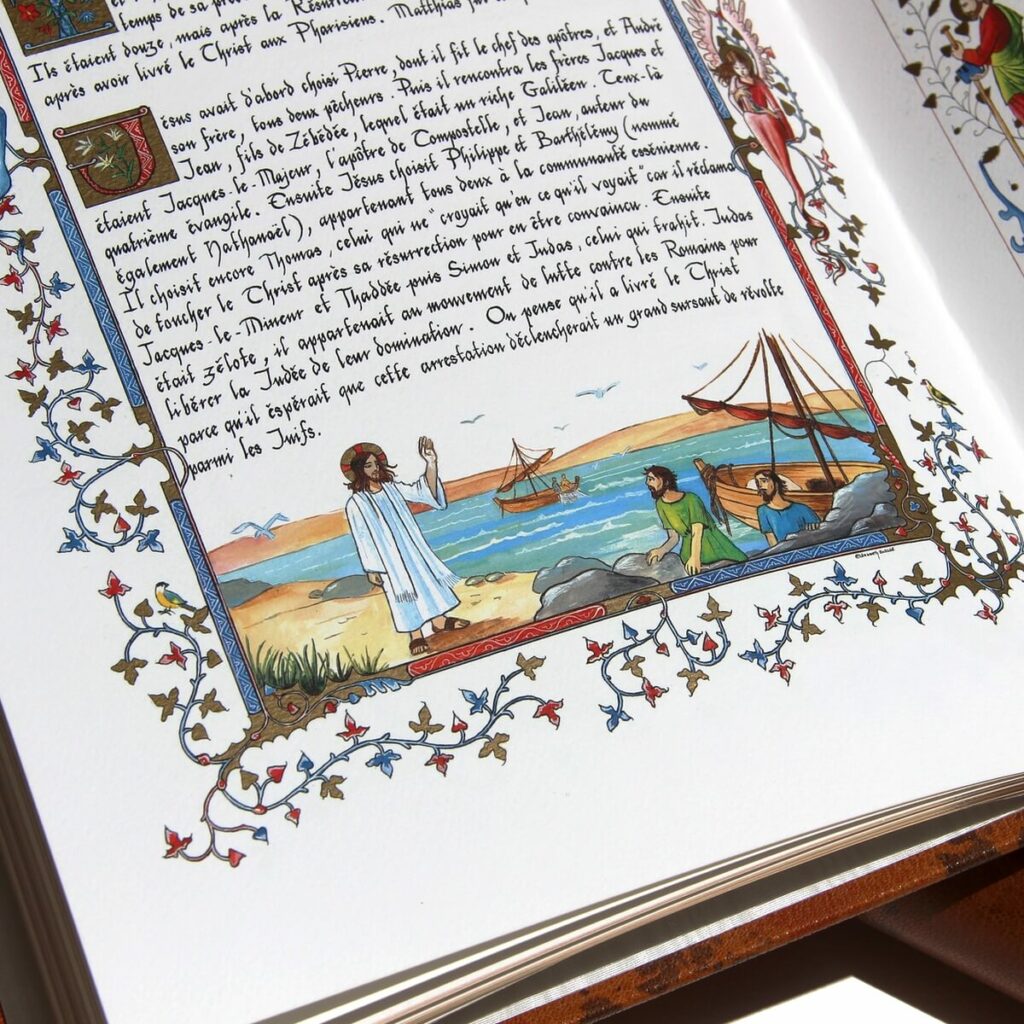 temps de sa pré
Ils étaient douze, mais après la Résurre
après avoir livré le Christ aux Pharisiens. Matthias fut
Jésus avait d'abord choisi Pierre, dont il fit le chef des apôtres, et André
son frère, tous deux pêcheurs. Puis il rencontra les frères Jacques et
Jean, fils de Zébédée, lequel était un riche Galiléen. Ceux-là
étaient Jacques-le-Majeur, l'apôtre de Compostelle, et Jean, auteur du
quatrième évangile. Ensuite Jésus choisit Philippe et Barthélémy (nommé
également Nathanaël), appartenant tous deux à la communauté essénienne.
Il choisit encore Thomas, celui qui ne "croyait qu'en ce qu'il voyait" car il réclama
de toucher le Christ après sa résurrection pour en être convaincu. Ensuite
Jacques-le-Mineur et Thaddée puis Simon et Judas, celui qui trahit. Judas
était zélote, il appartenait au mouvement de lutte contre les Romains pour
libérer la Judée de leur domination. On pense qu'il a livré le Christ
parce qu'il éspérait que cette arrestation déclencherait un grand sursaut de révolte
parmi les Juifs.